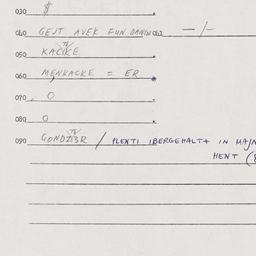 030 $
040 GEJT AVEK FUN DANIN 062 -/-
050 KAČKE
060 MENKACKE = ER
070 O
080 O
090 / PLENTI IBERGEHALT+ IN MAJN
HENT (